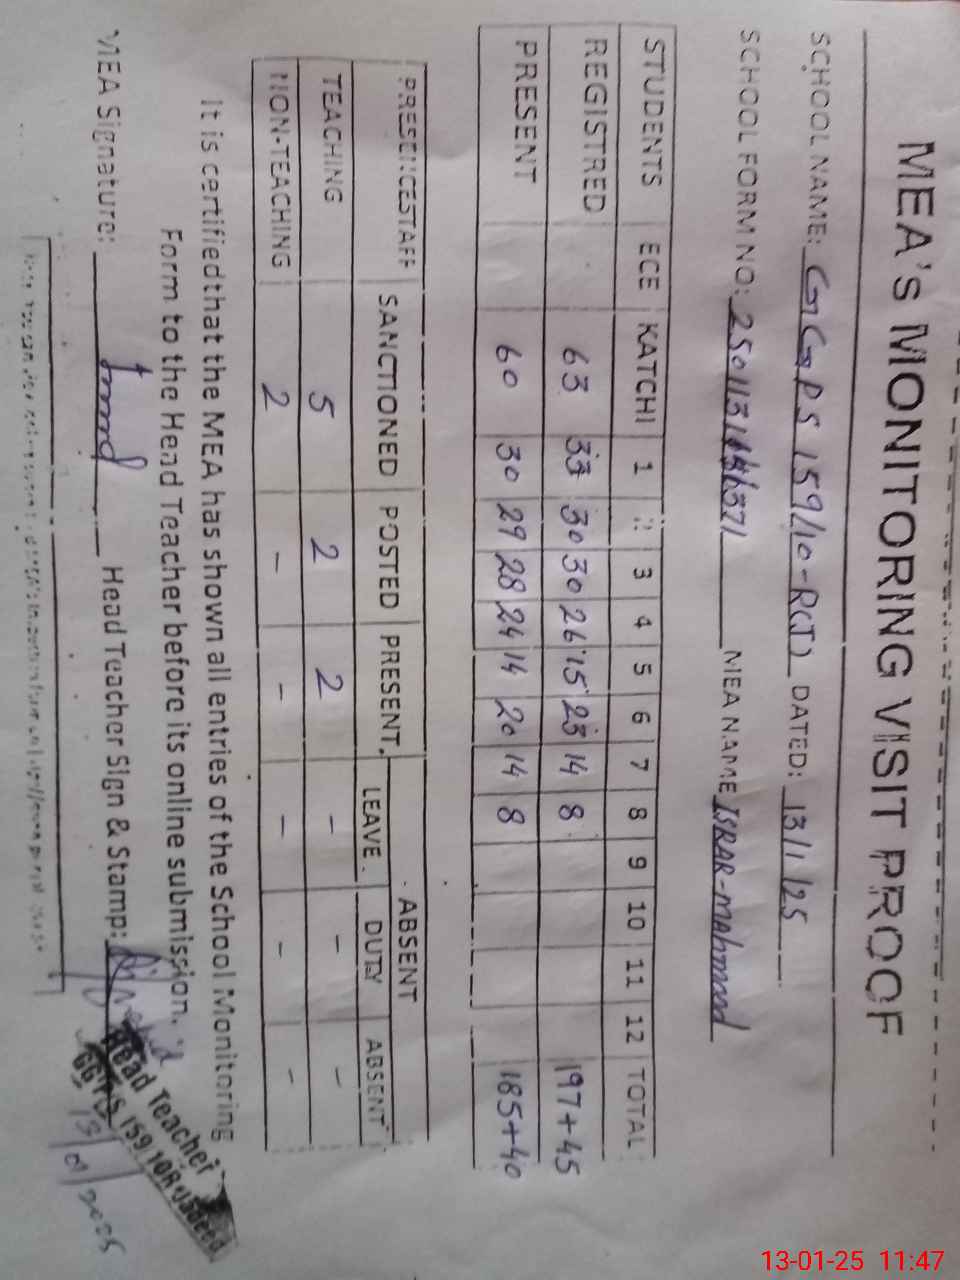 MEA'S MONITORING VISIT PROOF
SCHOOL NAME: GGPS 159/10-R(J) DATED: 13/1/25
SCHOOL FORM NO: MEA NAME ISRAR-Mahmood
STUDENTS ECE KATCHI 1 2 3 4 5 6 7 8 9 10 11 12 TOTAL
REGISTRED 63 33 30 30 26 15 23 14 8 197+45
PRESENT 60 30 29 28 24 14 20 14 8 185+40
PRESENCESTAFF SANCTIONED POSTED PRESENT ABSENT
LEAVE DUTY ABSENT
TEACHING 5 2 2 - - -
NON-TEACHING 2 - - - - -
It is certifiedthat the MEA has shown all entries of the School Monitoring
Form to the Head Teacher before its online submission.
MEA Signature: Head Teacher Sign & Stamp:
Head Teacher
159/10R
13/01/2025
13-01-25 11:47